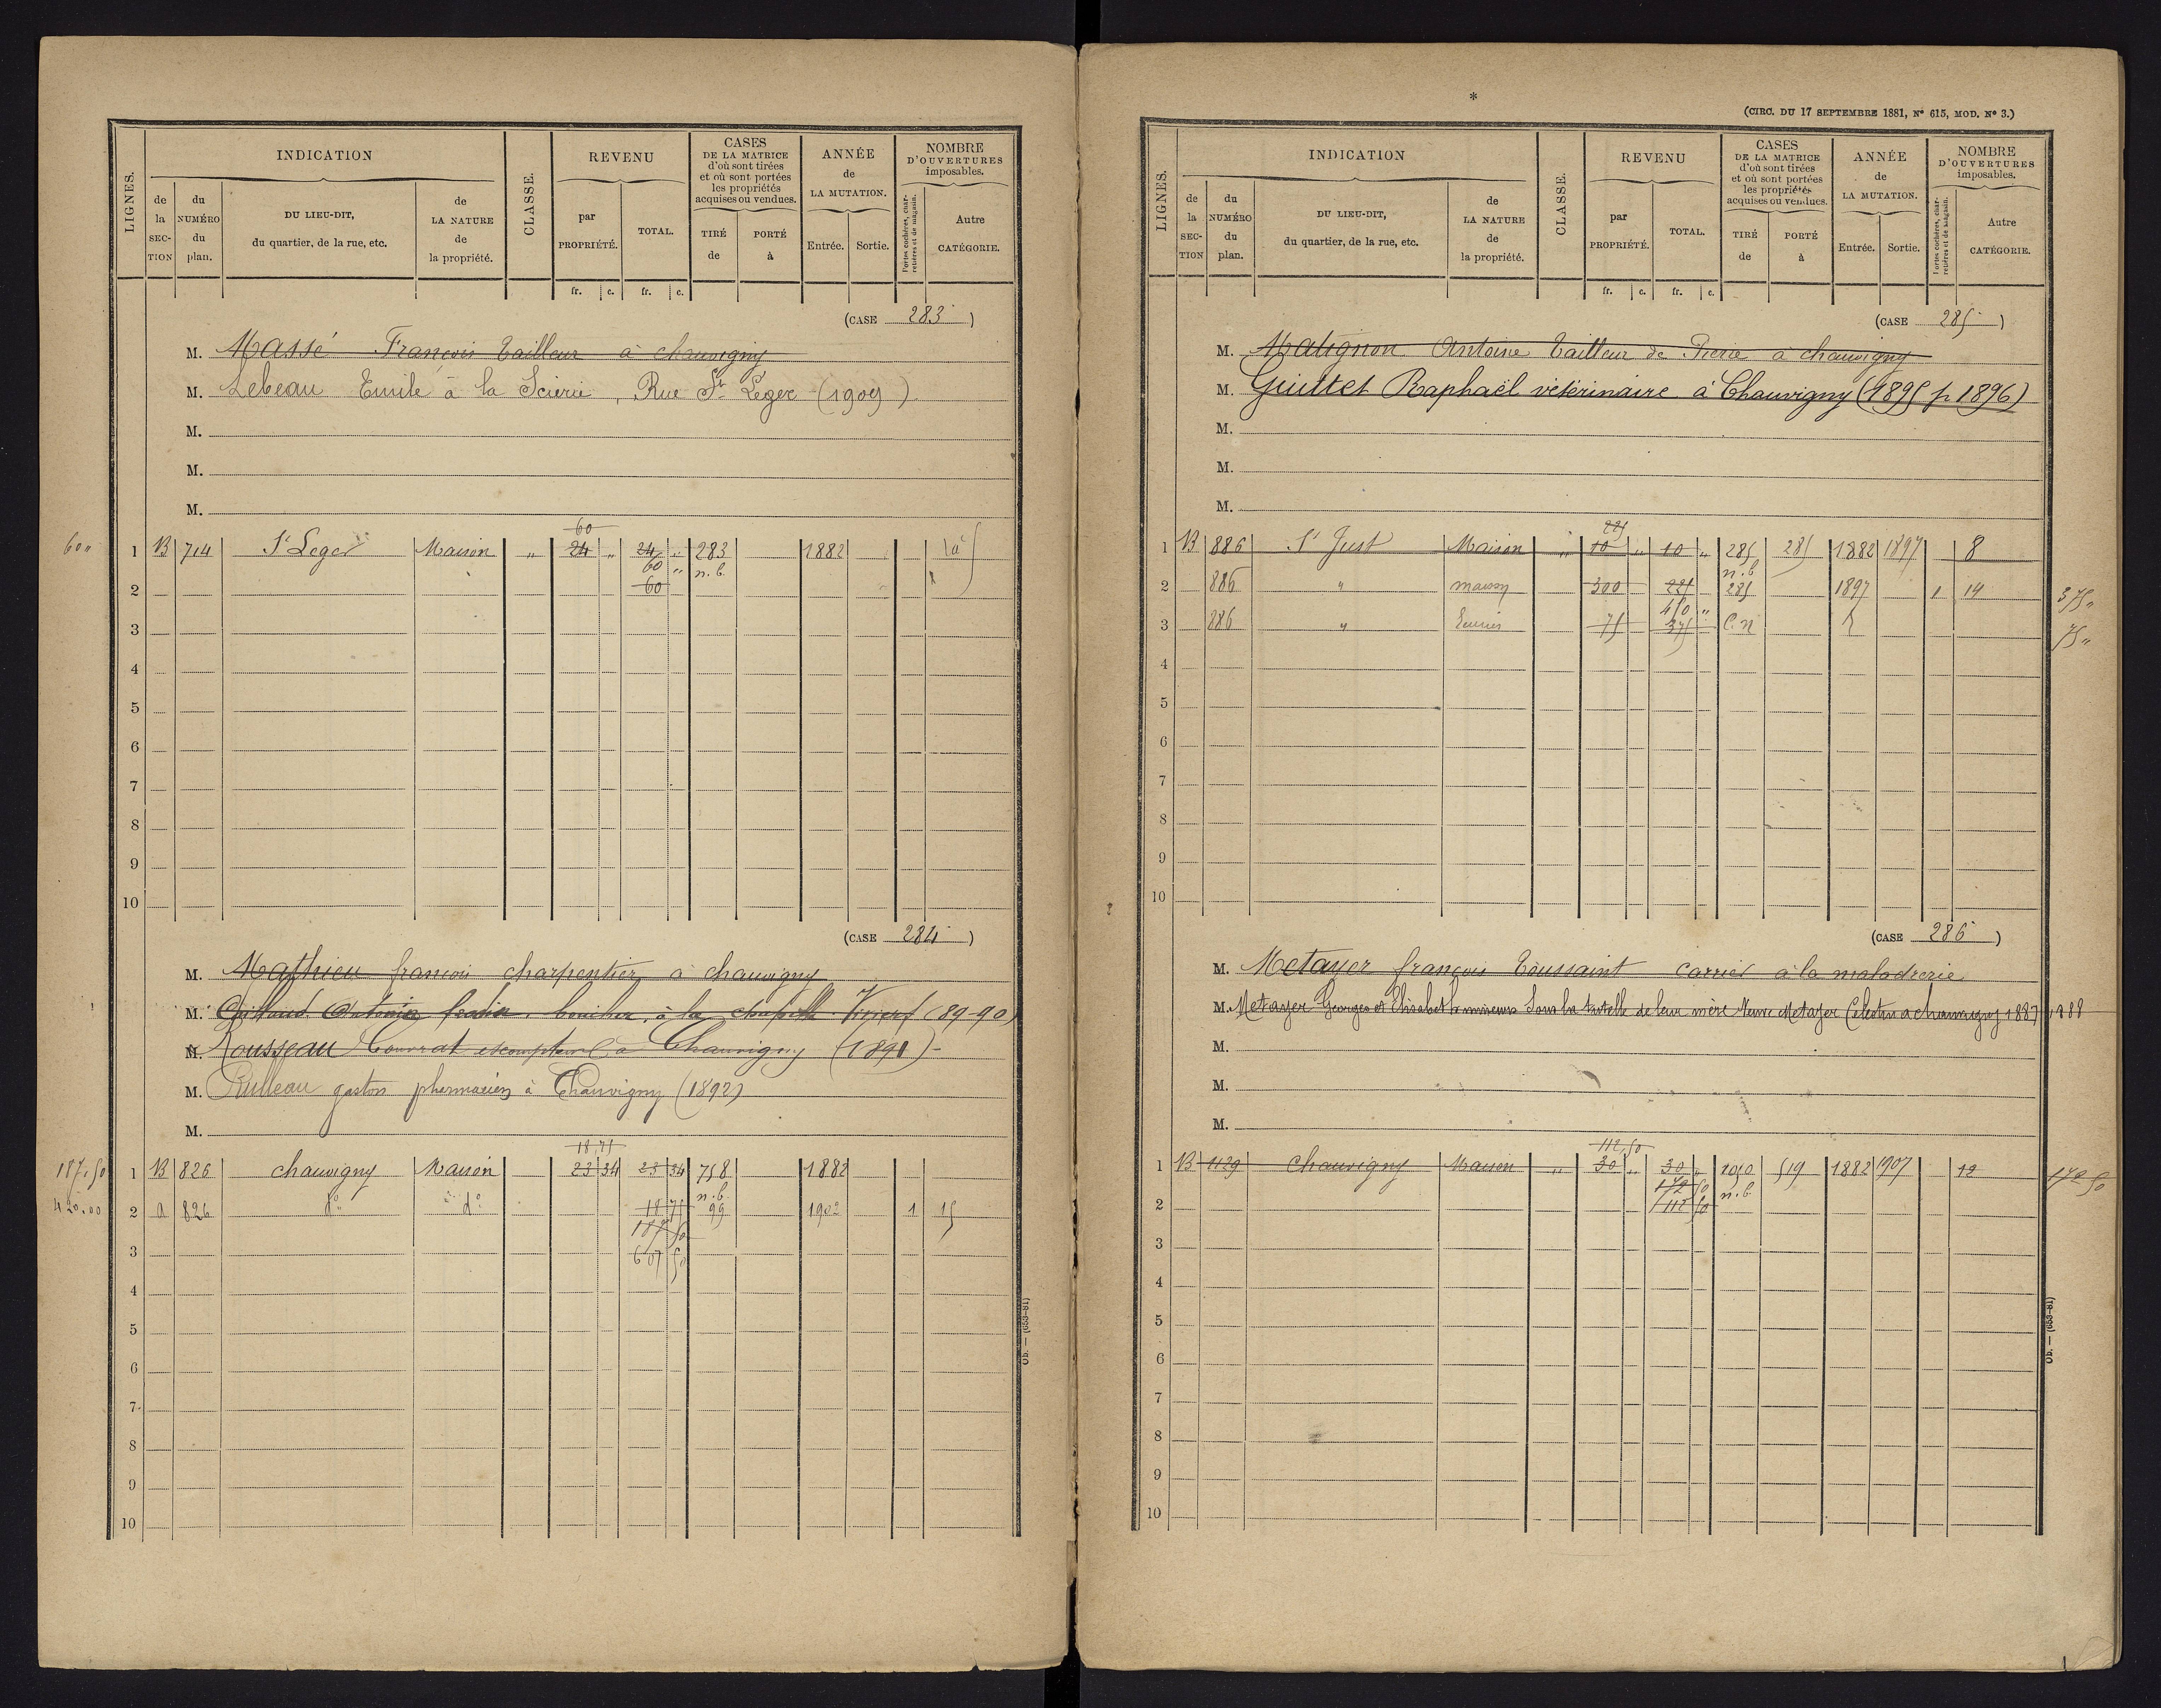 LIGNES.
INDICATION
de la SECTION
du NUMÉRO du plan.
DU LIEU-DIT, du quartier, de la rue, etc.
de LA NATURE de la propriété.
CLASSE.
REVENU
par PROPRIÉTÉ.
TOTAL.
CASES DE LA MATRICE d'où sont tirées et où sont portées les propriétés acquises ou vendues.
TIRÉ de
PORTÉ à
ANNÉE de LA MUTATION.
Entrée. Sortie.
NOMBRE D'OUVERTURES imposables.
Portes cochères, charretières et de magasin.
Autre CATÉGORIE.
fr. c. fr. c.
(CASE 283)
M. Massé François tailleur à chauvigny
M. Lebeau Emile à la Scierie, Rue St Léger (1909)
M.
M.
M.
60
60 "
1 B 714 St Leger Maison " 24 " 24 " 283 1882
60 " n.b.
2 60
3
4
5
6
7
8
9
10
(CASE 284)
M. Mathieu françois charpentier à chauvigny
M. Antonin boucher, à la chapelle Viviers (89-90)
M. Rousseau escompteur à Chauvigny (1891)
M. Rulleau gaston pharmacien à Chauvigny (1892)
M.
18,75
187,50 1 B 826 chauvigny Maison 23 34 23 34 758 1882
n.b.
420.00 2 a 826 d° d° 18 75 99 1902 1 15
187 50
3 607 50
4
5
6
7
8
9
10
Ob. — (653-81)
*
(CIRC. DU 17 SEPTEMBRE 1881, N° 615, MOD. N° 3.)
LIGNES.
INDICATION
de la SECTION
du NUMÉRO du plan.
DU LIEU-DIT, du quartier, de la rue, etc.
de LA NATURE de la propriété.
CLASSE.
REVENU
par PROPRIÉTÉ.
TOTAL.
CASES DE LA MATRICE d'où sont tirées et où sont portées les propriétés acquises ou vendues.
TIRÉ de
PORTÉ à
ANNÉE de LA MUTATION.
Entrée. Sortie.
NOMBRE D'OUVERTURES imposables.
Portes cochères, charretières et de magasin.
Autre CATÉGORIE.
fr. c. fr. c.
(CASE 285)
M. Matignon Antoine tailleur de Pierre à chauvigny
M. Guittet Raphaël vétérinaire à Chauvigny (1895 p 1896)
M.
M.
M.
225
1 B 886 St Just Maison " 10 " 10 " 285 285 1882 1897 8
n.b
2 886 " maison 300 225 285 1897 1 14 375 "
450 "
3 886 " Ecurie 75 375 C.N 75 "
4
5
6
7
8
9
10
(CASE 286)
M. Metayer françois Toussaint carrier à la maladrerie
M. Metayer Georges et Elisabeth mineurs sous la tutelle de leur mère Veuve Metayer Celestin a chauvigny 1887 1888
M.
M.
M.
112,50
1 B 1129 Chauvigny Maison " 30 " 30 " 1050 519 1882 1907 12 172 50
172 50 n.b.
2 112 50
3
4
5
6
7
8
9
10
Ob. — (653-81)